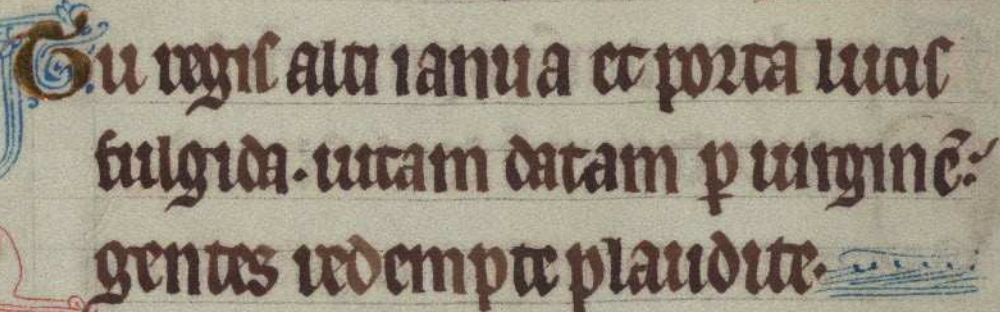 Tu regis alti ianua et porta lucis
fulgida. uitam datam p uirginē:
gentes redempte plaudite.